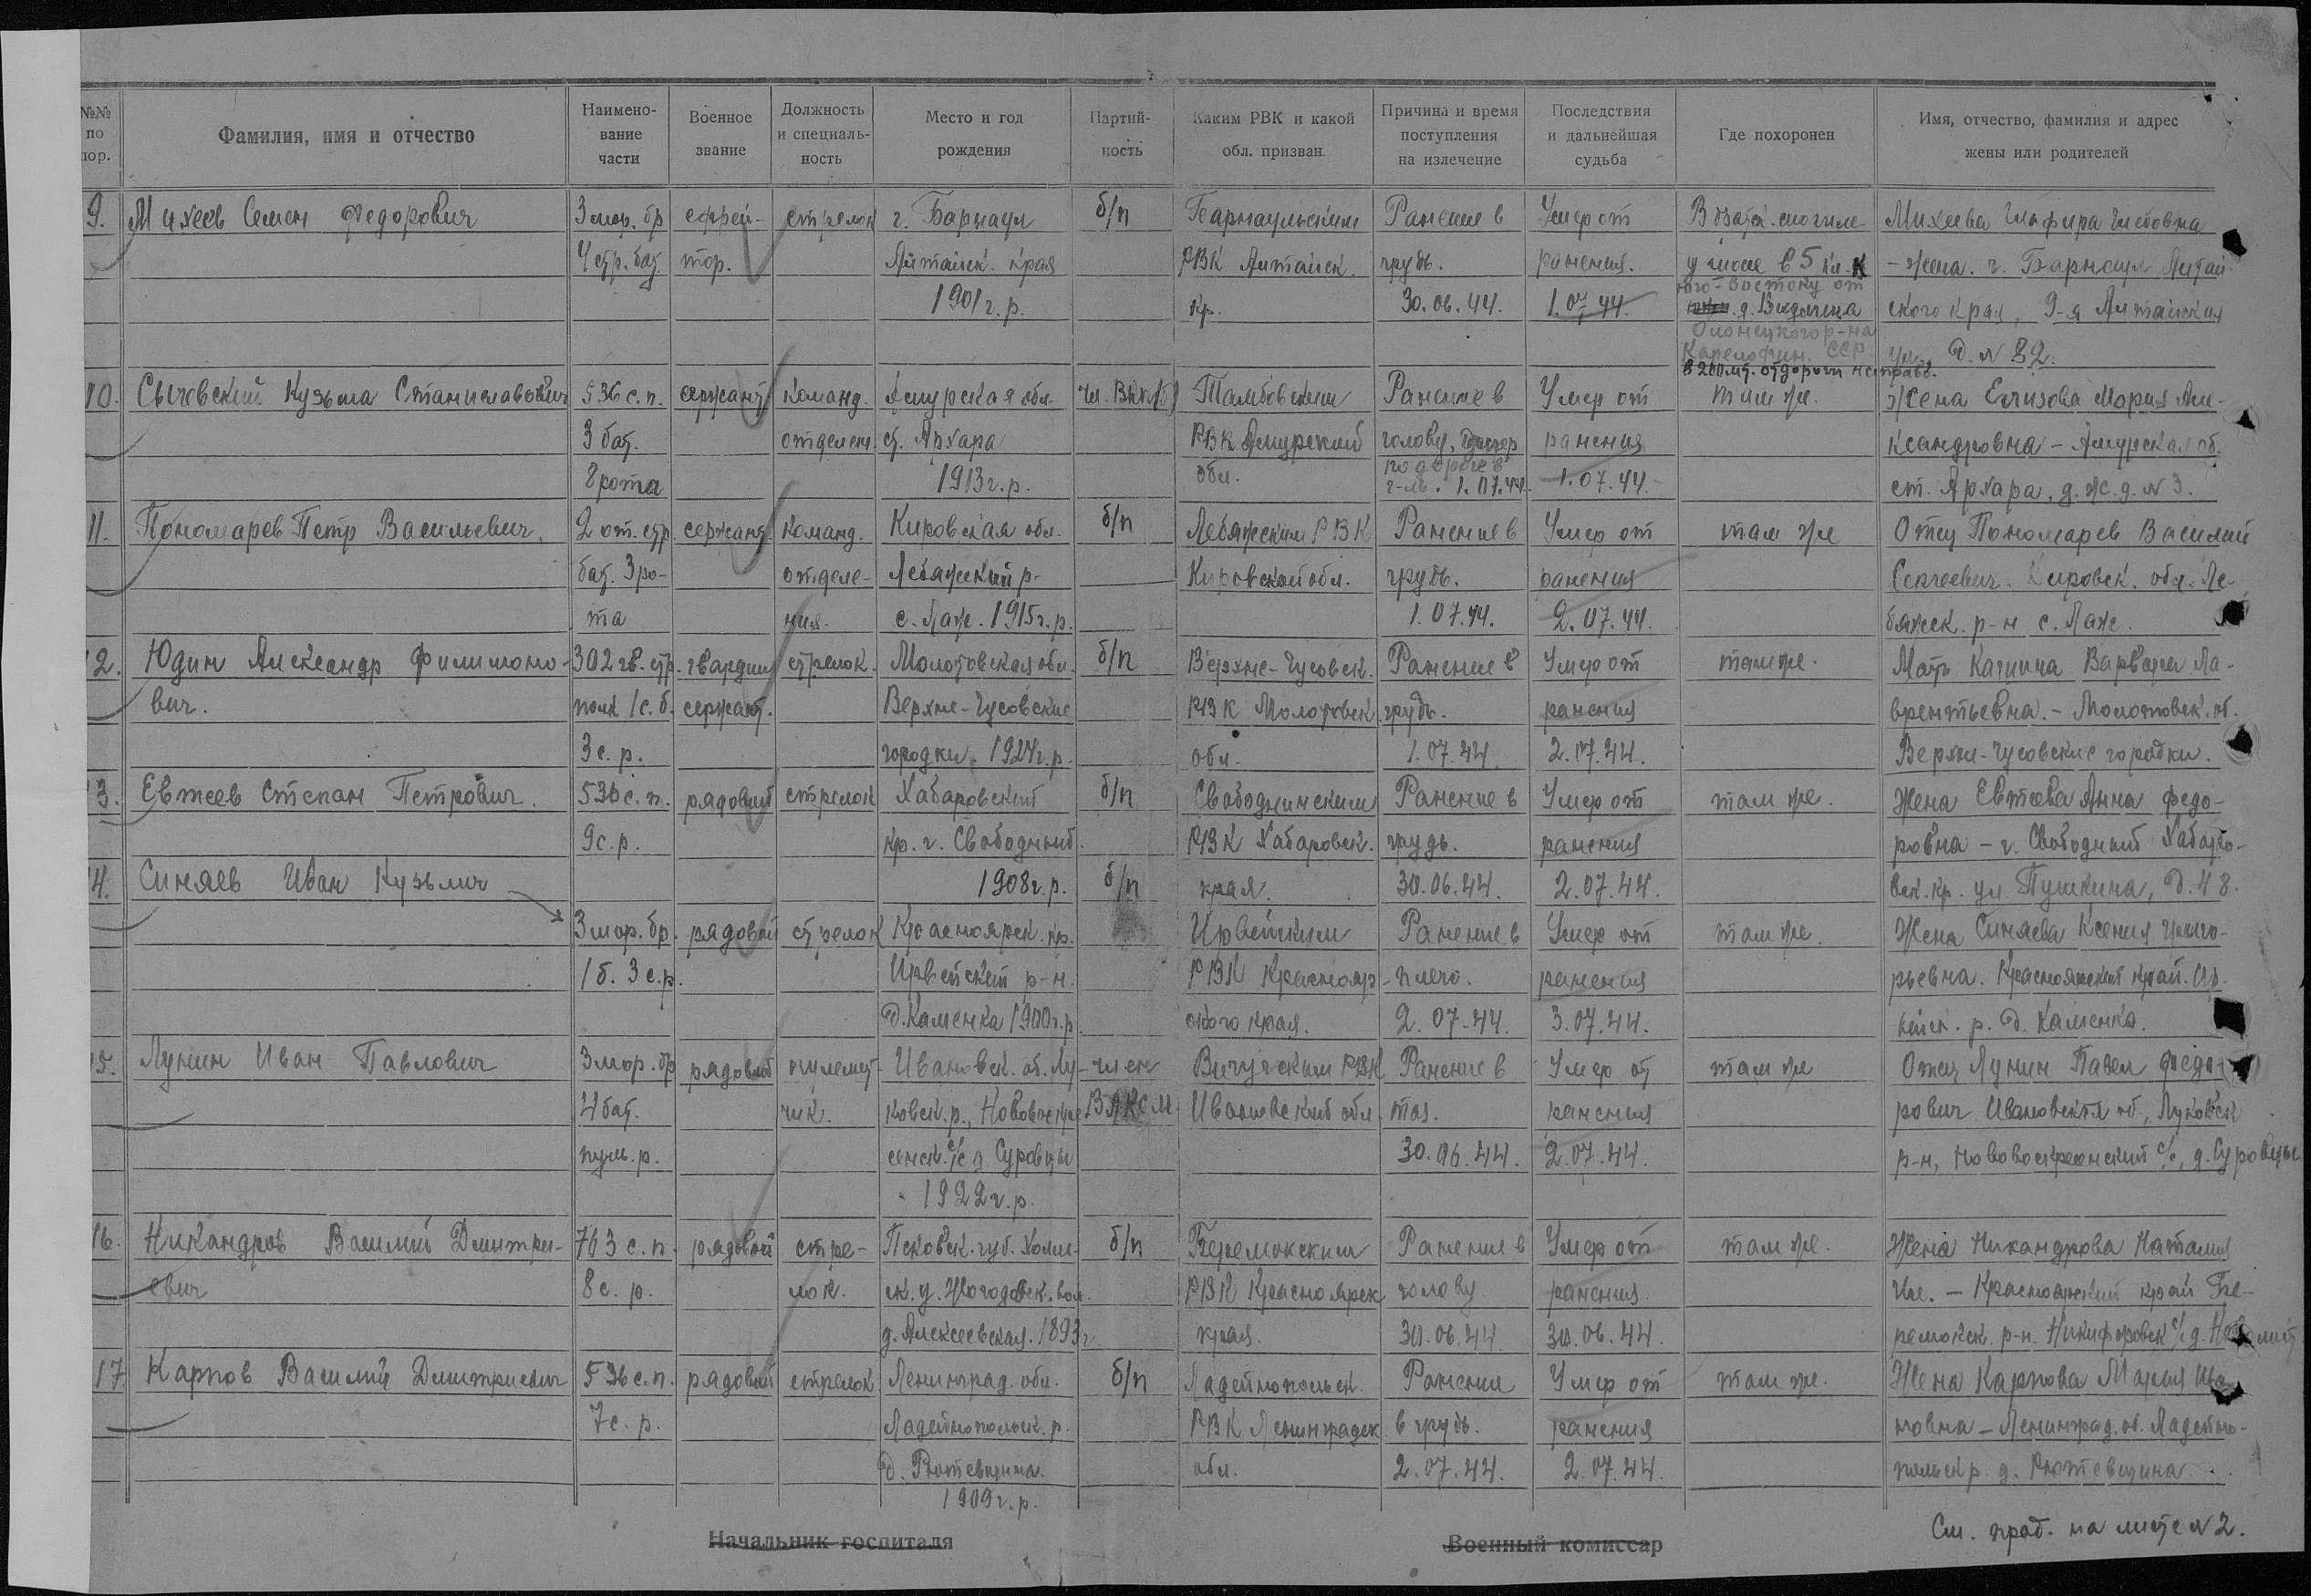 №№ по пор.
Фамилия, имя и отчество
Наимено-вание части
Военное звание
Должность и специаль-ность
Место и год рождения
Партий-ность
Каким РВК и какой обл. призван.
Причина и время поступления на излечение
Последствия и дальнейшая судьба
Где похоронен
Имя, отчество, фамилия и адрес жены или родителей
9. Михеев Семен Федорович 3 мор. бр ефрей- стрелок г. Барнаул б/п Барнаульским Ранение в Умер от В братск. могиле Михеева Глафира Глебовна
4 стр. бат. тор. Алтайск. края РВК Алтайск. грудь. ранения. в 5 км. к - жена. г. Барнаул Алтай-
1901 г.р. кр. 30.06.44. 1.07.44. юго-востоку от д. Видлица ского края, 9-я Алтайская
Олонецкого р-на
Карелофин. ССР ул. д. № 82.
в 200 мт. от дороги направ.
10. Сычевский Кузьма Станиславович 536 с.п. сержант команд. Амурская обл. чл. ВКП(б) Тамбовским Ранение в Умер от там же. Жена Елизова Мария Але-
3 бат. отделен. ст. Архара РВК Амурской голову, умер ранения ксандровна - Амурская об.
8 рота 1913 г.р. обл. по дороге в г-ль. 1.07.44. 1.07.44. ст. Архара, д. ж.д. № 3.
11. Пономарев Петр Васильевич. 2 от. стр сержант. команд. Кировская обл. б/п Лебяжским РВК Ранение в Умер от там же Отец Пономарев Василий
бат. 3 ро- отделе- Лебяжский р- Кировской обл. грудь. ранения Сергеевич. Кировск. обл. Ле-
та ния. с. Лаж. 1915 г.р. 1.07.44. 2.07.44. бяжск. р-н с. Лаж.
12. Юдин Александр Филимоно- 302 гв. стр. гвардии стрелок. Молотовская обл. б/п Верхне-Чусовск. Ранение в Умер от там же. Мать Варвара Ла-
вич. полк 1 с.б. сержант. Верхне-Чусовские РВК Молотовск. грудь. ранения врентьевна. - Молотовск. об.
3 с.р. городки. 1924 г.р. обл. 1.07.44 2.07.44. Верхне-Чусовские городки.
13. Евтеев Степан Петрович. 536 с.п. рядовой стрелок Хабаровский б/п Свободнинским Ранение в Умер от там же. Жена Евтеева Анна Федо-
9 с.р. кр. г. Свободный. РВК Хабаровск. грудь. ранения ровна - г. Свободный Хабаро-
14. Синяев Иван Кузьмич 1908 г.р. б/п края. 30.06.44. 2.07.44. вск. кр. ул. Пушкина, д. 48.
3 мор. бр. рядовой стрелок Красноярск. кр. Ирбейским Ранение в Умер от там же. Жена Синяева Ксения Григо-
1 б. 3 с.р. Ирбейский р-н. РВК Краснояр- плечо. ранения рьевна. Красноярский край. Ир-
д. Каменка 1900 г.р. ского края. 2.07.44. 3.07.44. бейск. р. д. Каменка.
15. Лунин Иван Павлович 3 мор. бр рядовой пулемет- Ивановск. об. Лу- член Вичугским РВК Ранение в Умер от там же Отец Лунин Павел Федо-
4 бат. чик. ховск. р., Нововоскре ВЛКСМ Ивановской обл. таз. ранения рович Ивановская об., Луховск
пул. р. сенск. с/с д. Суровцы 30.06.44. 2.07.44. р-н, Нововоскресенский с/с, д. Суровцы
1922 г.р.
16. Никандров Василий Дмитри- 763 с.п. рядовой стре- Псковск. губ. Холм- б/п РВК Красноярск Ранение в Умер от там же. Жена Никандрова Наталия
евич 8 с.р. лок. ск. у. вол. голову ранения. Красноярский край
д. Алексеевская. 1893 г края. 30.06.44 30.06.44. р-н. Никифоровск с/с д.
17 Карпов Василий Дмитриевич 536 с.п. рядовой стрелок Ленинград. обл. б/п Ладейнопольск. Ранения Умер от там же. Жена Карпова Мария Ива-
7 с.р. Ладейнопольск. р. РВК Ленинградск в грудь. ранения новна - Ленинград. об. Ладейно-
д. обл. 2.07.44. 2.07.44. польск р. д.
1909 г.р.
Начальник госпиталя
Военный комиссар
См. прод. на листе № 2.